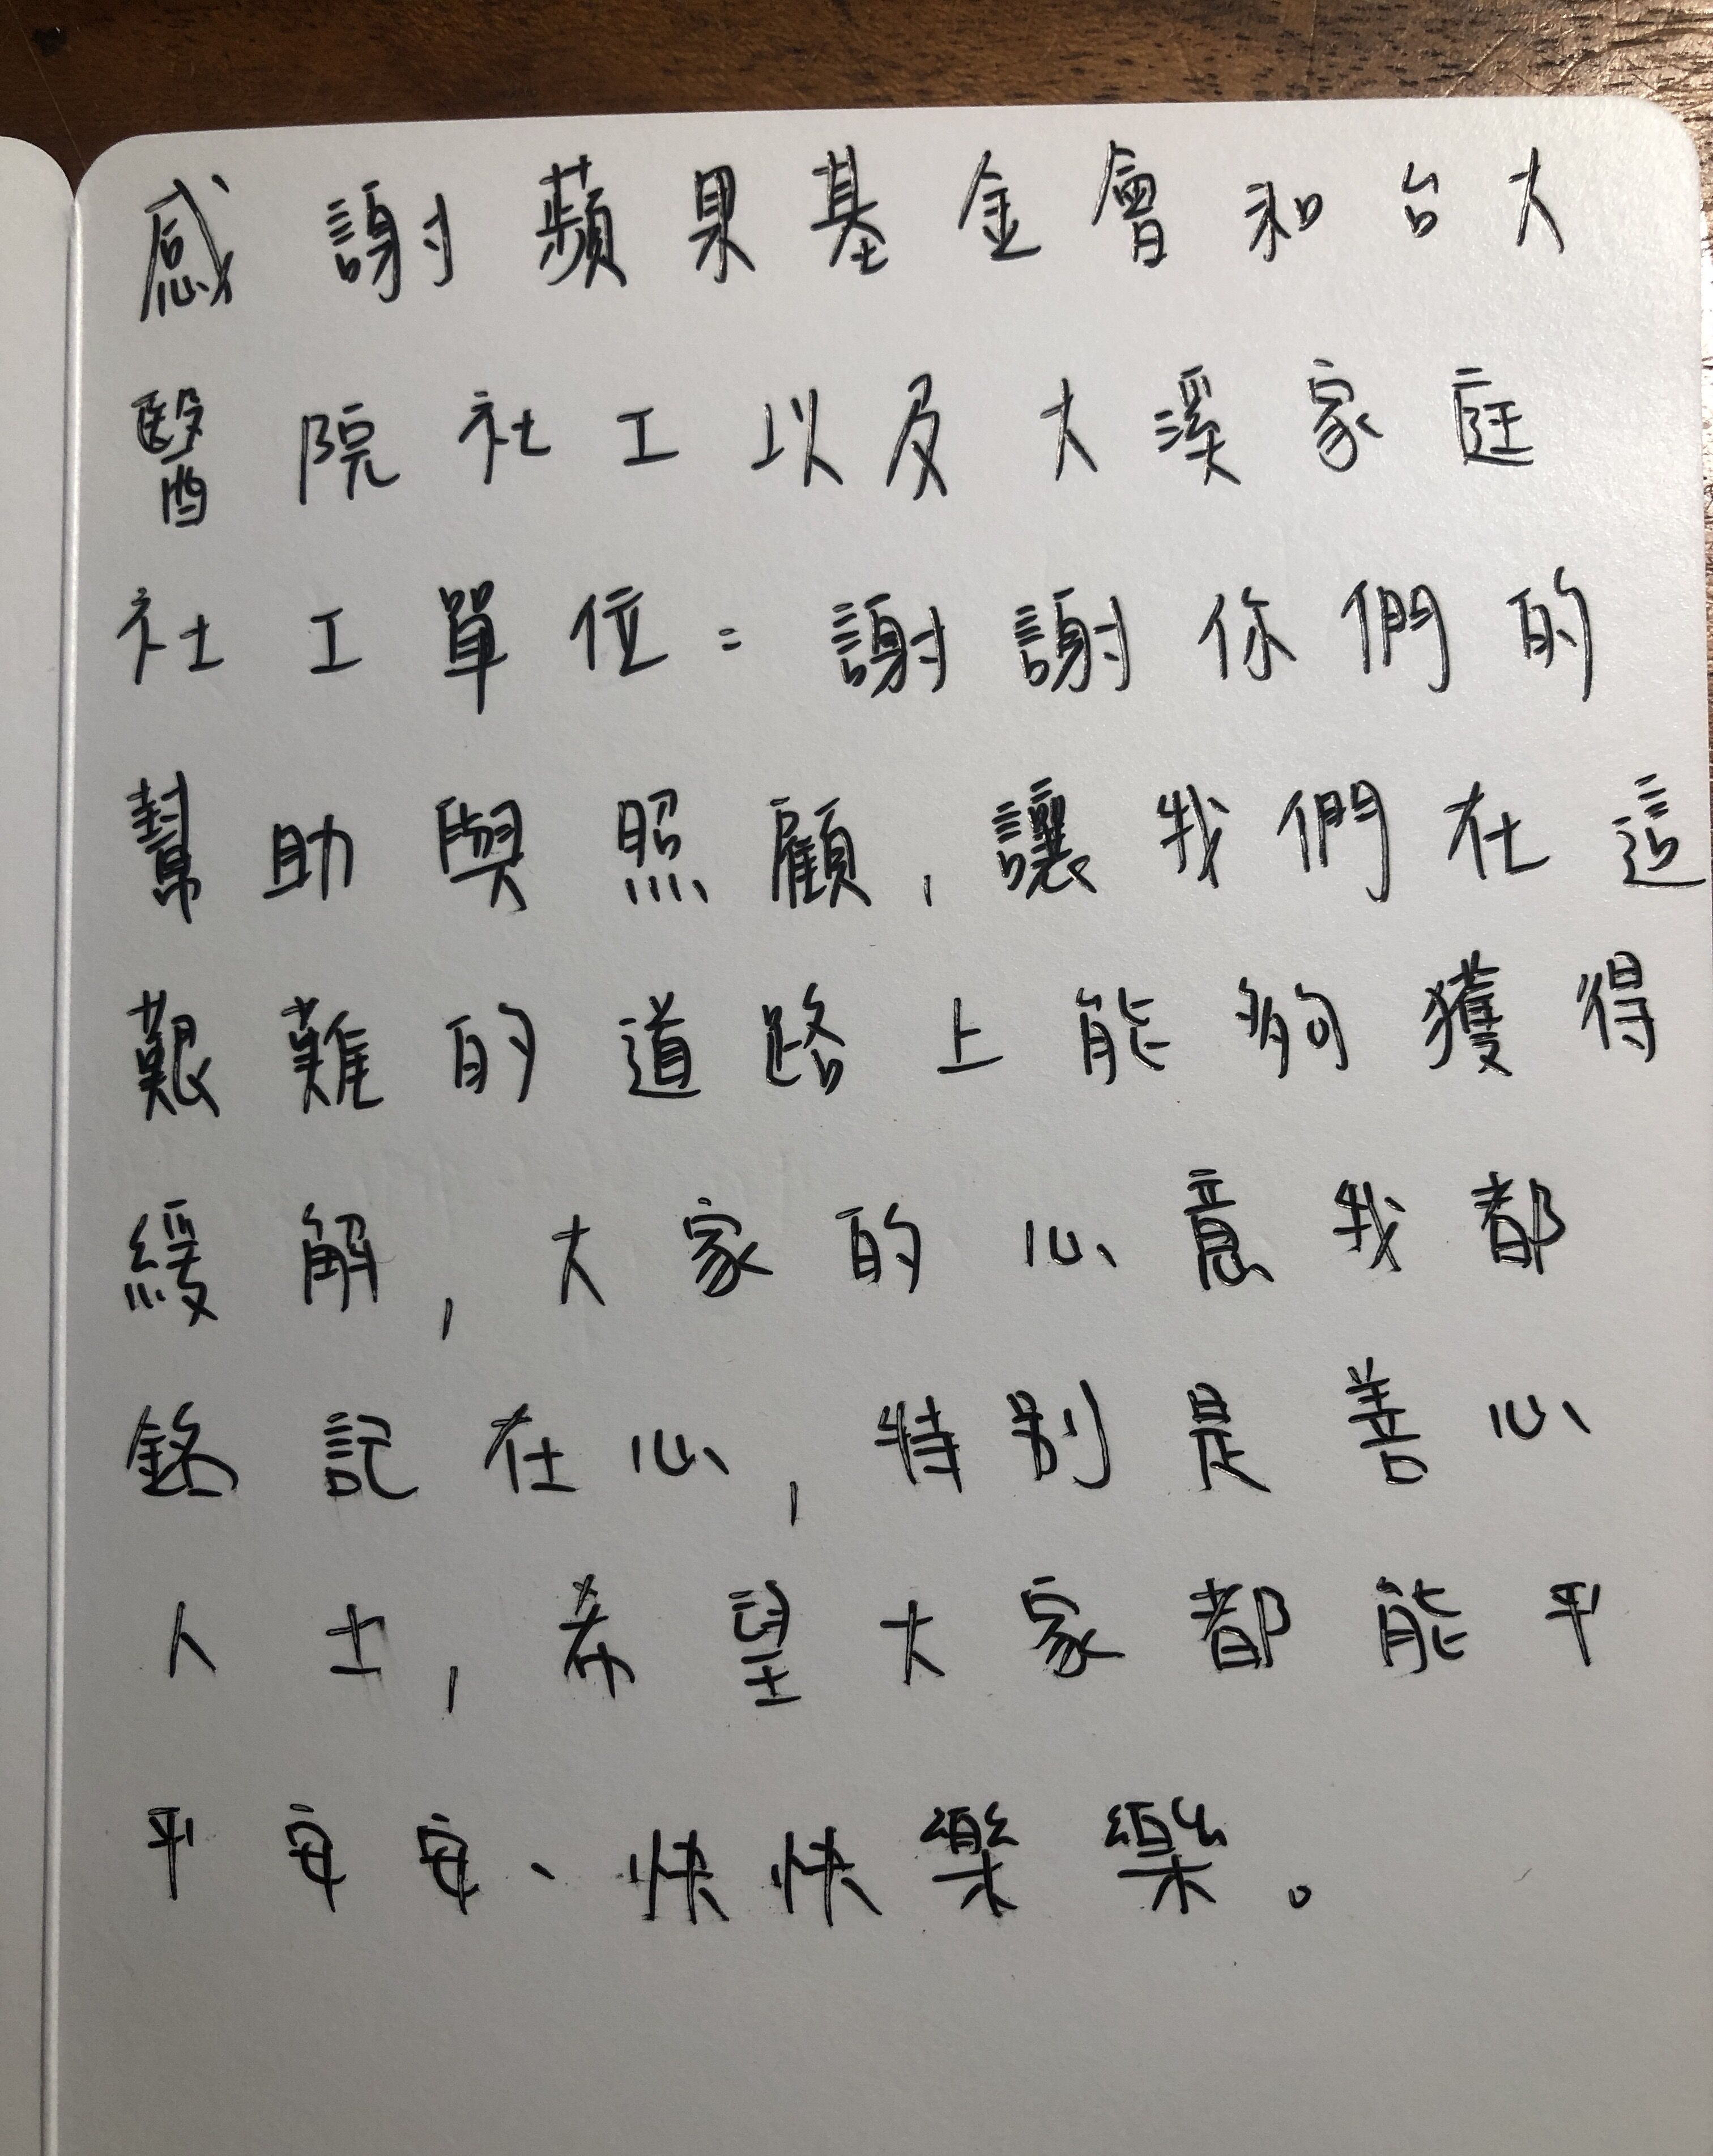 感謝蘋果基金會和台大
醫院社工以及大溪家庭
社工單位：謝謝你們的
幫助與照顧，讓我們在這
艱難的道路上能夠獲得
緩解，大家的心意我都
銘記在心，特別是善心
人士，希望大家都能平
平安安、快快樂樂。